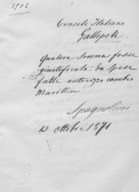 Console Italiano
Gallipoli
Qualora somma fosse
giustificata da spese
fatte autorizzo
Marittimi
Spagnolini
13 ottobre 1871